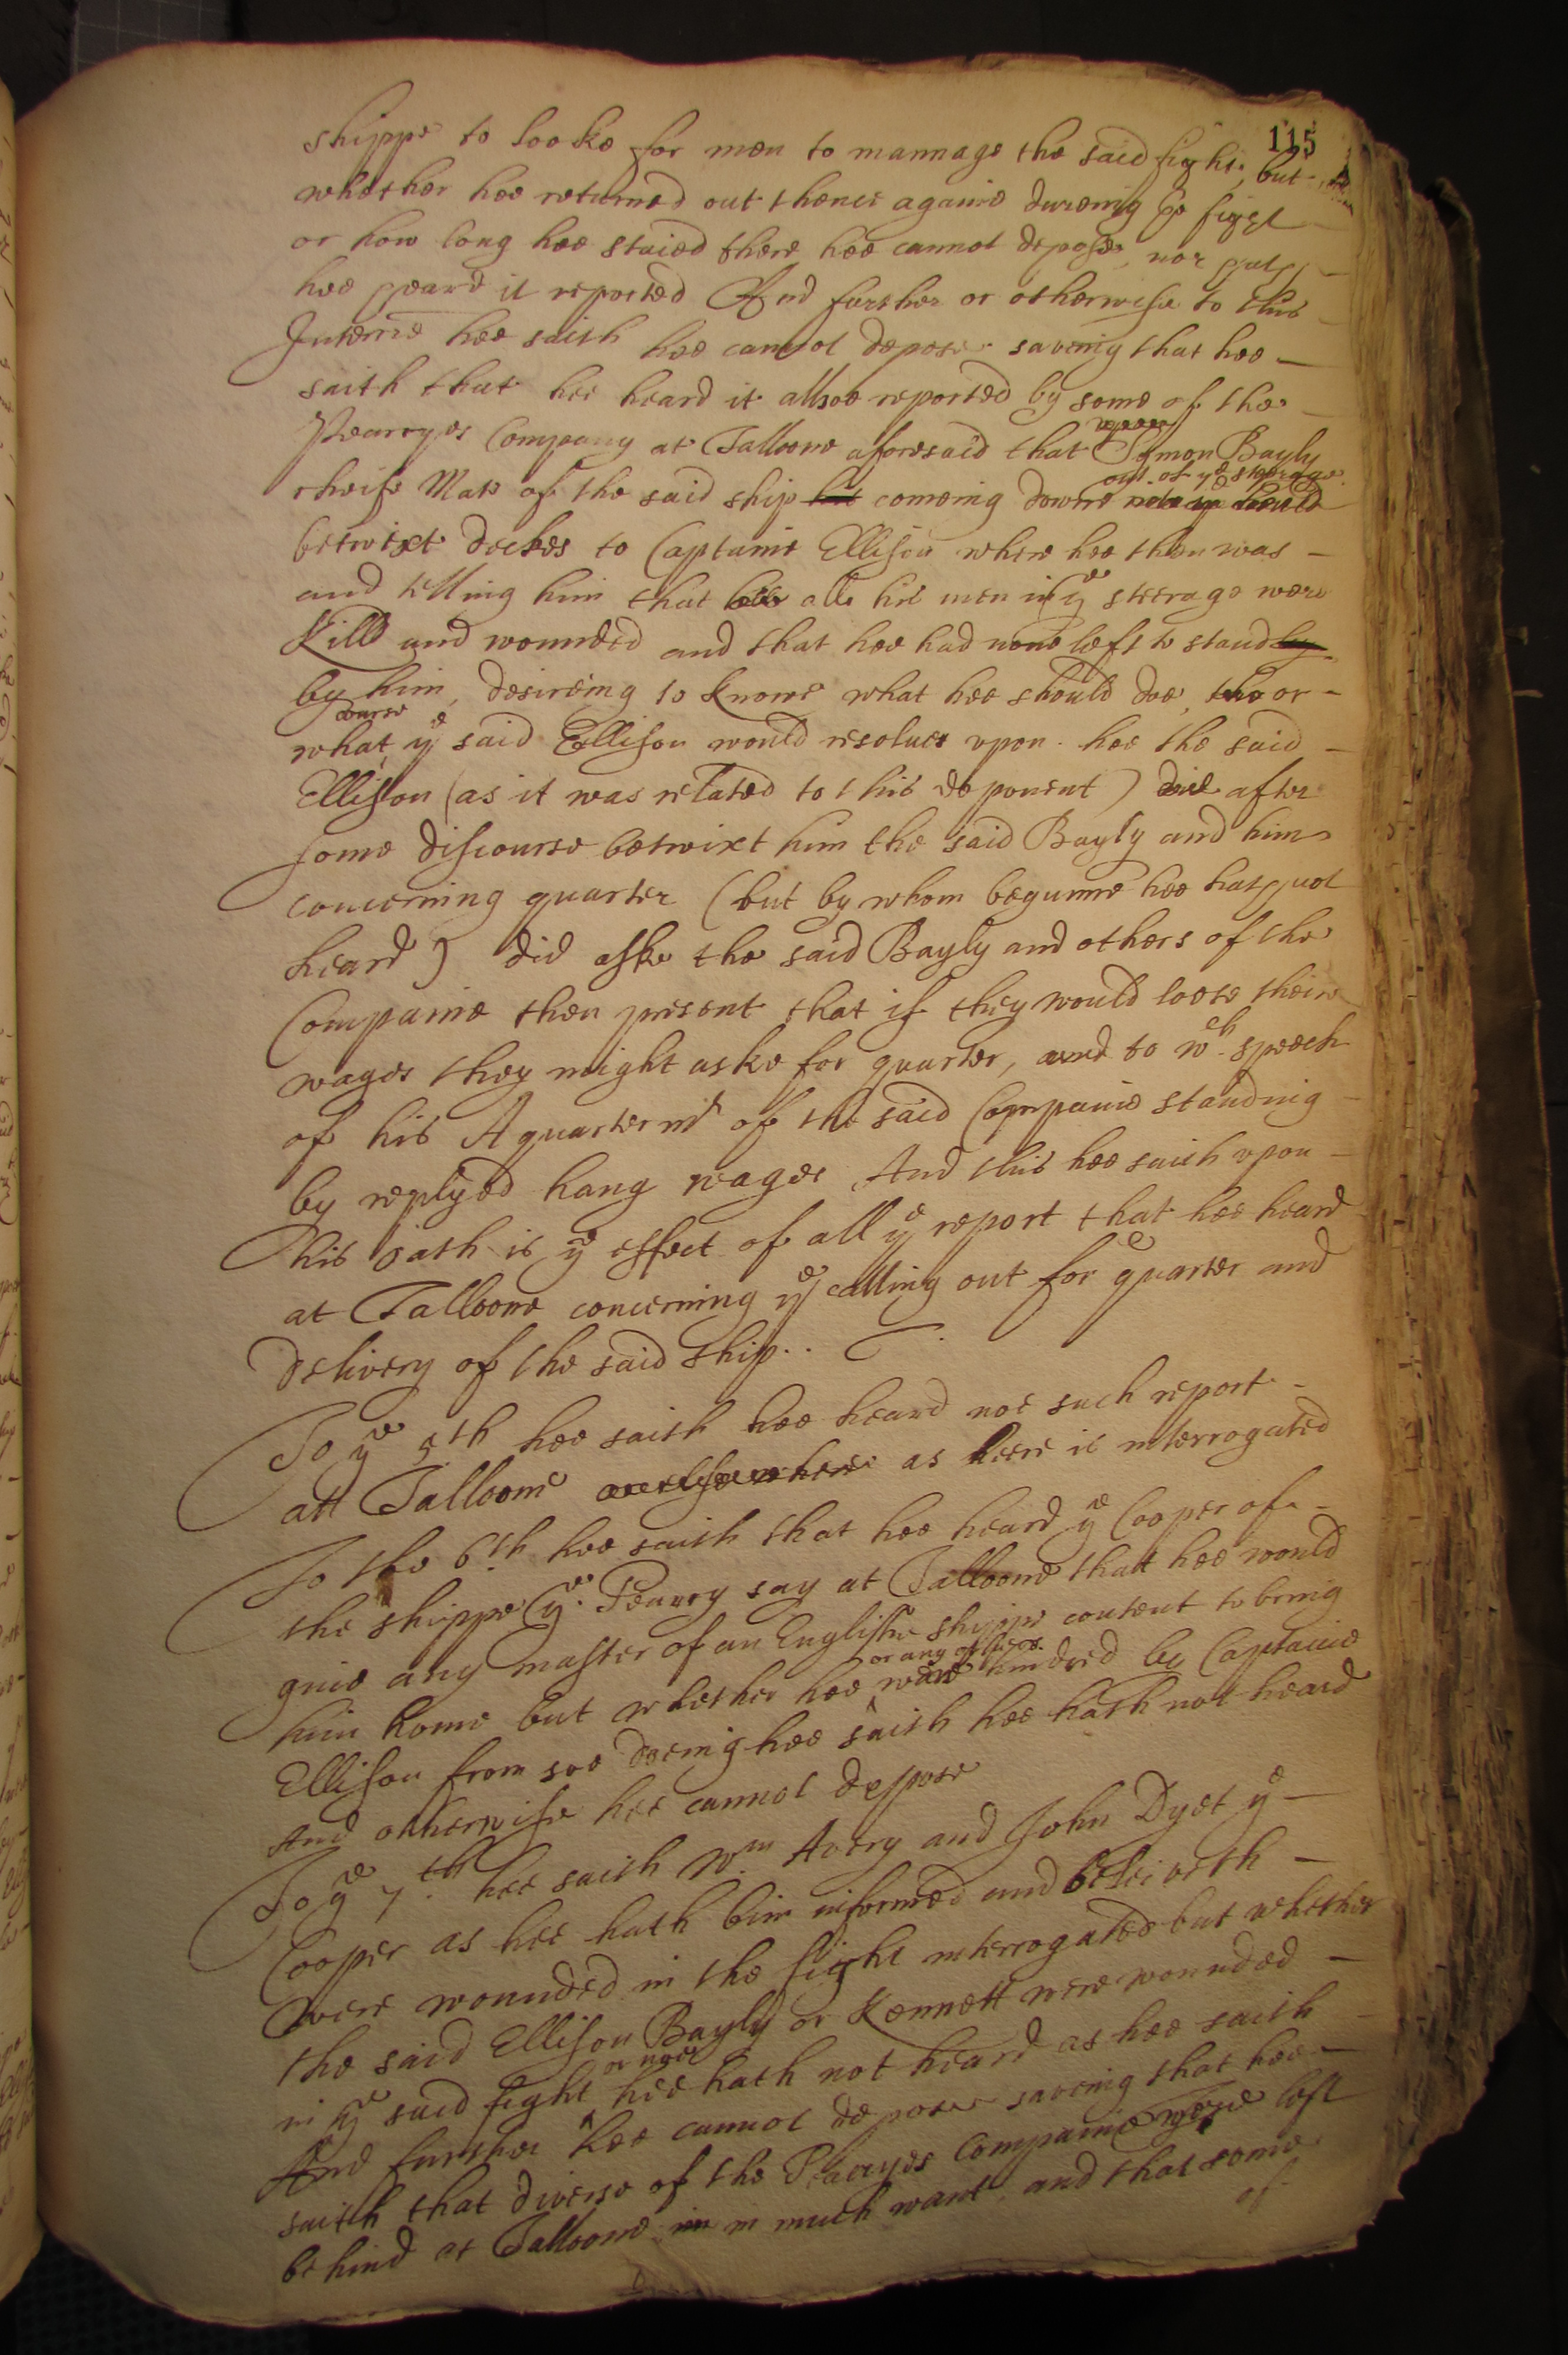 115
shippe to looke for men to mannage the said fight, but
whether hee returned out thence againe dureing ye fight
or how long hee staied there hee cannot depose, nor hath
hee heard it reported And further or otherwise to this
Interrie hee saith hee cannot depose saveing that hee
saith that hee heard it allsoe reported by some of the
Pearryes Company at Talloone aforesaid that Symon Bayly
out of ye steerage
cheife Mate of the said ship comeing downe
betwixt deckes to Captaine Ellison where hee then was
and telling him that all his men in ye steerage were
Killd and wounded and that hee had none left to stand
by him, desireing to knowe what hee should doe, or
course
what ye said Ellison would resolue vpon. hee the said
Ellison (as it was related to this deponent) did after
some discourse betwixt him the said Bayly and him
concerning quarter (but by whom begunne hee hath not
heard) did aske the said Bayly and others of the
Companie then present that if they would loose their
wages they might aske for quarter, and to wch speech
of his A quarter mr of the said Companie standing
by replyed hang wages And this hee saith vpon
his oath is ye effect of all ye report that hee heard
at Talloone concerning ye calling out for quarter and
delivery of the said ship..
To ye 5th hee saith hee heard noe such report
att Talloone or elsewhere as heere is interrogated
To the 6th hee saith that hee heard ye Cooper of
the shippe ye Pearry say at Talloone that hee would
giue any master of an Englishe shippe content to bring
or any others
him home but whether hee were hindred by Captaine
Ellison from soe doeing hee saith hee hath not heard
And otherwise hee cannot depose
To ye 7th hee saith Wm Avery and John Dyet ye
Cooper as hee hath bin informed and beleiveth
were wounded in the fight interrogated but whether
the said Ellison Bayly or Kennett were wounded
or noe
in ye said fight hee hath not heard as hee saith
And further hee cannot depose saveing that hee
saith that diverse of the Pearryes Companie were left
behind at Talloone in much want, and that some
of